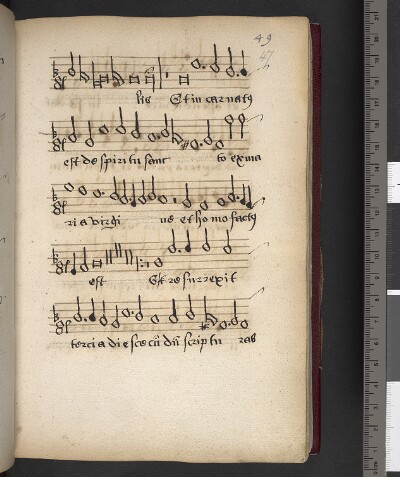 49
47
lis Et in carnatꝰ
est de spiritu sanct to ex ma
ri a virgi ne et ho mo factꝰ
est Et re surrexit
tercia die secūdū scriptu ras